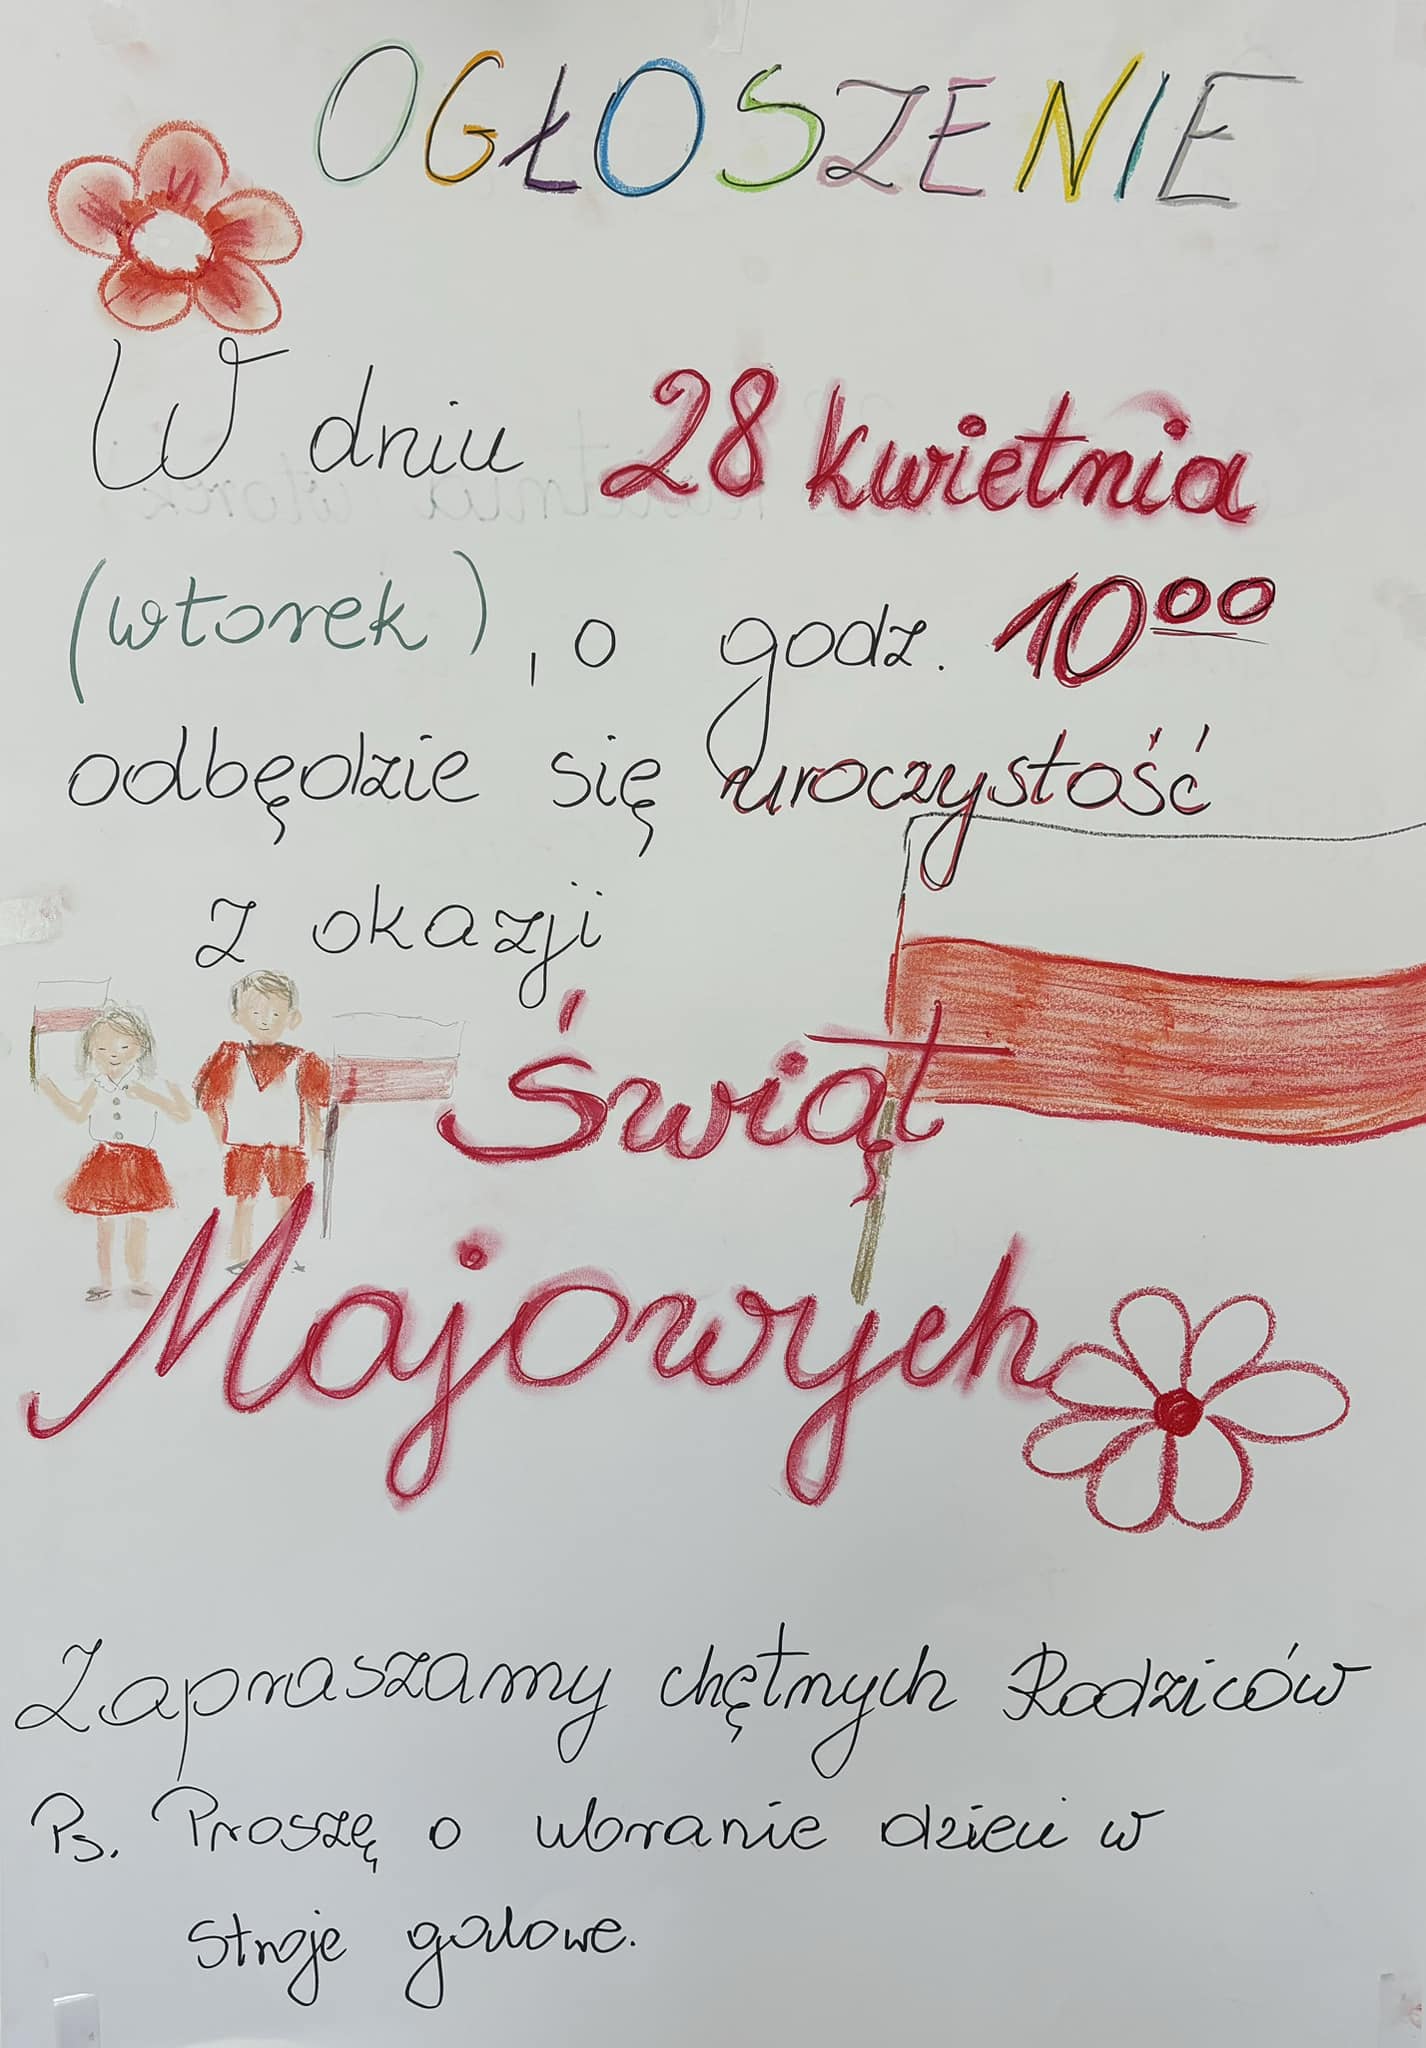 OGŁOSZENIE
W dniu 28 kwietnia
(wtorek), o godz. 10⁰⁰
odbędzie się uroczystość
z okazji
Świąt
Majowych
Zapraszamy chętnych Rodziców
Ps. Proszę o ubranie dzieci w
stroje galowe.